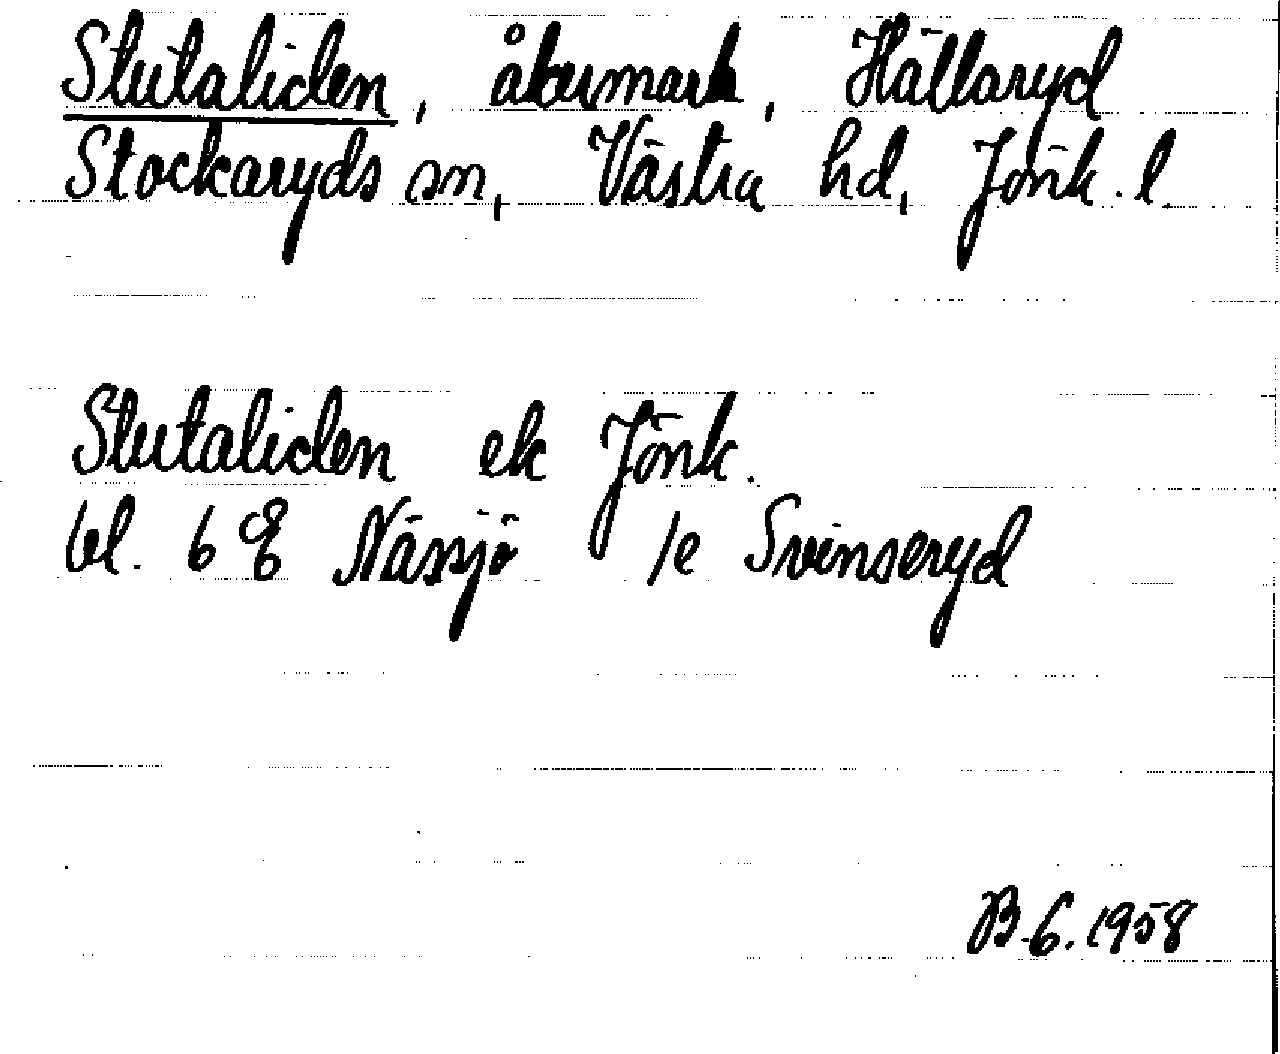 Slutaliden, åkermark, Hällaryd
Stockaryds sn, Västra hd, Jönk. l.
Slutaliden ek Jönk.
bl. 6 E Nässjö 1e Svinseryd
B.G. 1958